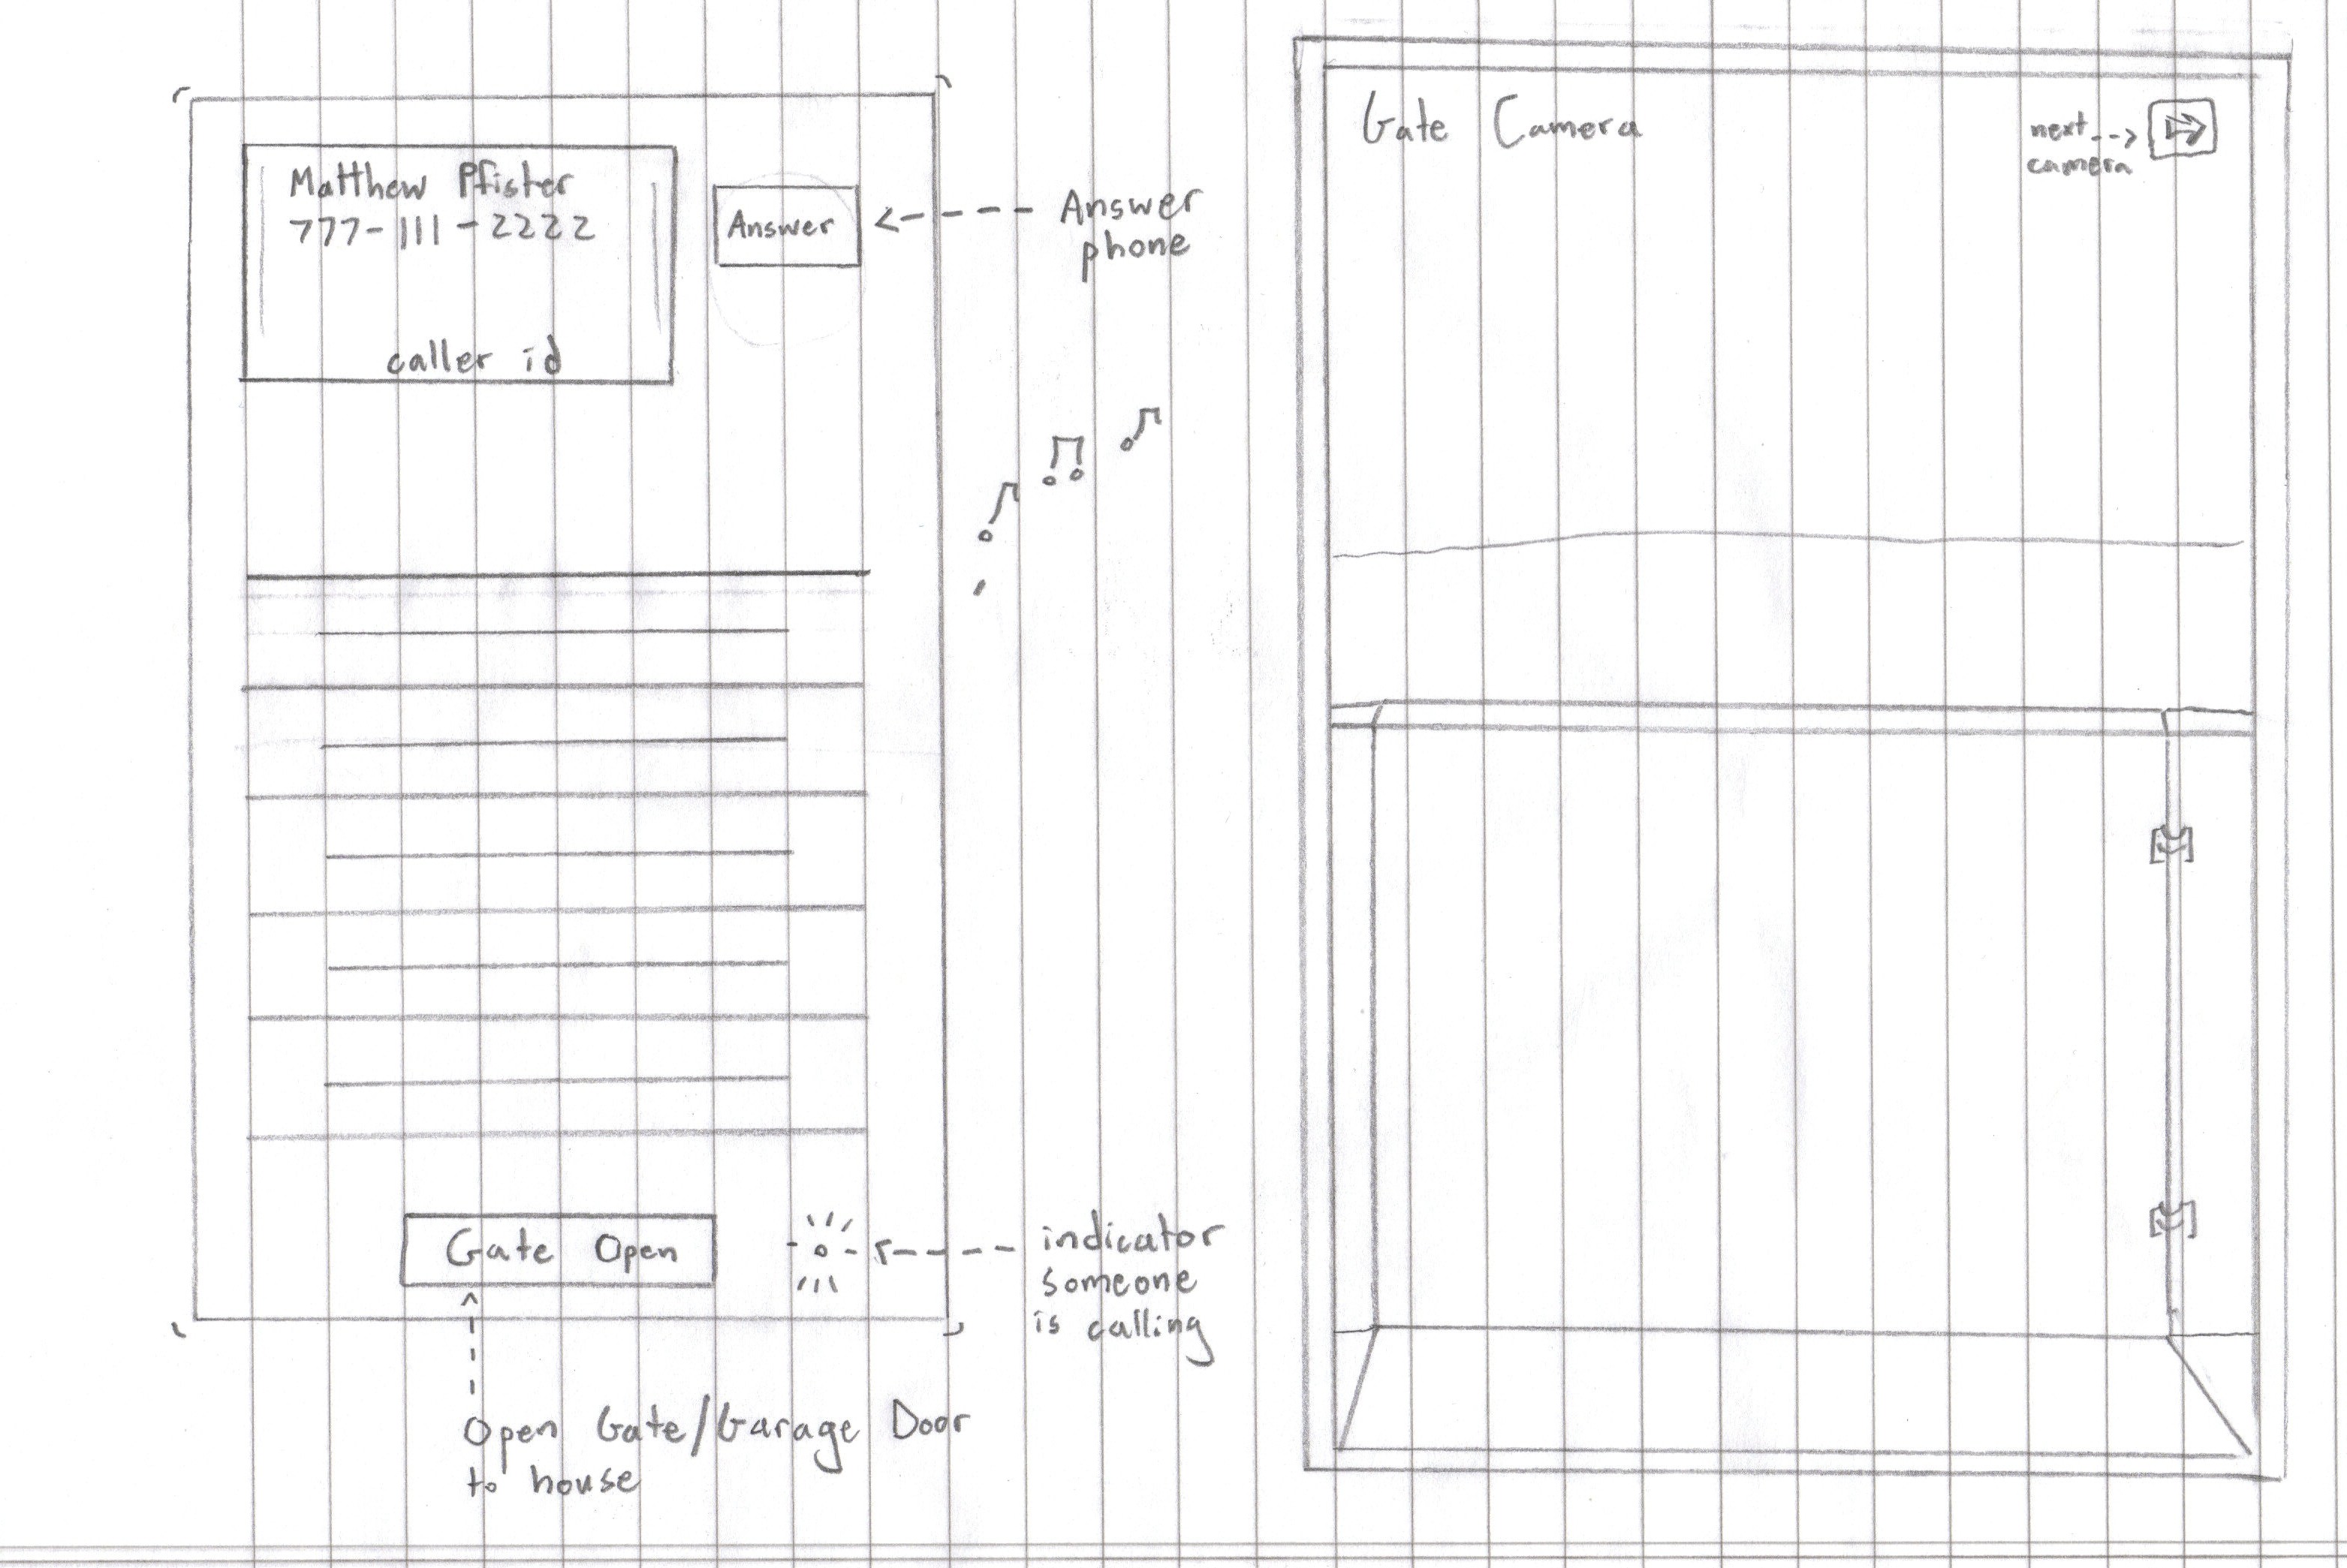 Matthew Pfister
777-111-2222
caller id
Answer
Answer
phone
Gate Open
indicator
someone
is calling
Open Gate/Garage Door
to house
Gate Camera
next
camera